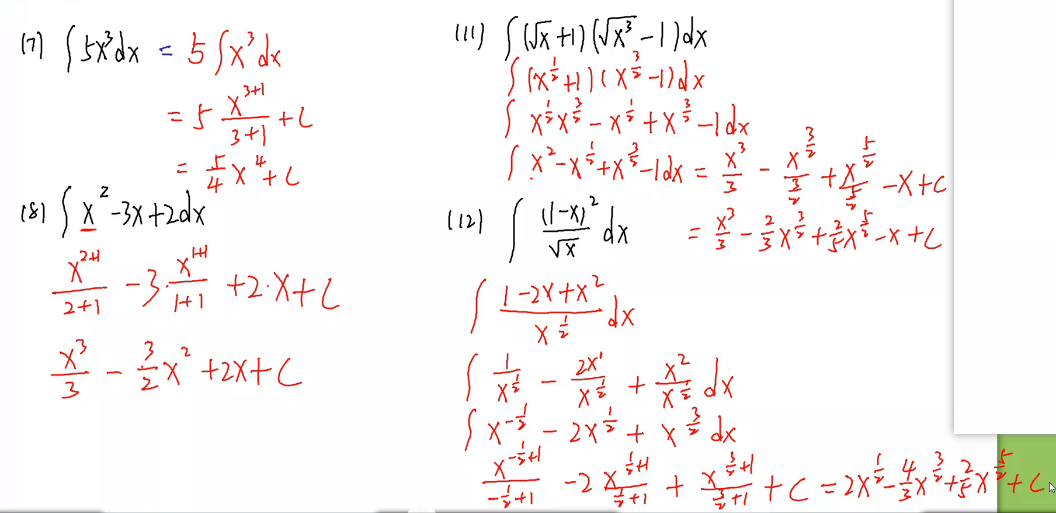 (7) ∫ 5x³dx = 5 ∫x³dx
= 5 x^(3+1)/(3+1) + C
= 5/4 x⁴ + C
(8) ∫ x² -3x+2dx
x^(2+1)/(2+1) - 3·x^(1+1)/(1+1) + 2·x + C
x³/3 - 3/2 x² + 2x + C
(11) ∫ (√x +1)(√x³ -1)dx
∫ (x^(1/2) +1)(x^(3/2) -1)dx
∫ x^(1/2) x^(3/2) - x^(1/2) + x^(3/2) -1dx
∫ x² - x^(1/2) + x^(3/2) -1dx = x³/3 - x^(3/2)/(3/2) + x^(5/2)/(5/2) - x + C
= x³/3 - 2/3 x^(3/2) + 2/5 x^(5/2) - x + C
(12) ∫ (1-x)²/√x dx
∫ (1-2x+x²)/x^(1/2) dx
∫ 1/x^(1/2) - 2x¹/x^(1/2) + x²/x^(1/2) dx
∫ x^(-1/2) - 2x^(1/2) + x^(3/2) dx
x^(-1/2+1)/(-1/2+1) - 2 x^(1/2+1)/(1/2+1) + x^(3/2+1)/(3/2+1) + C = 2x^(1/2) - 4/3 x^(3/2) + 2/5 x^(5/2) + C